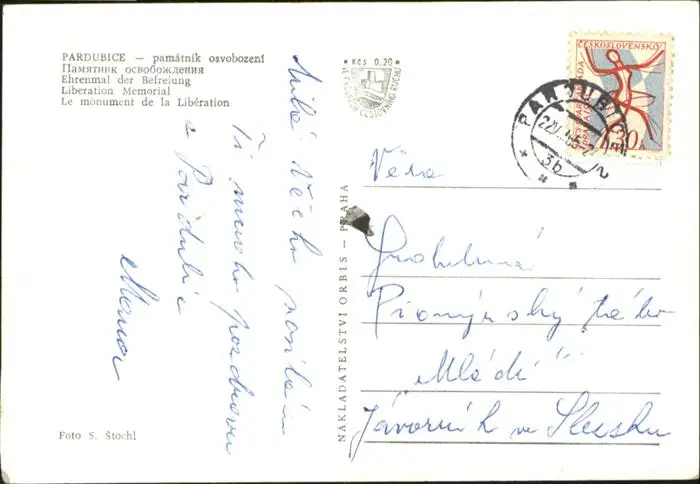 PARDUBICE — památník osvobození
Памятник освобождения
Ehrenmal der Befreiung
Liberation Memorial
Le monument de la Libération
Kčs 0,20
CESTOVNÍHO RUCHU
ČESKOSLOVENSKO
30h
PARDUBICE 2
3b
Milá Věrko posílám
Ti mnoho pozdravů
z Pardubic
NAKLADATELSTVÍ ORBIS — PRAHA
Věra
Pionýrský tábor
"Mládí"
Jávorník ve Slezsku
Foto S. Štochl